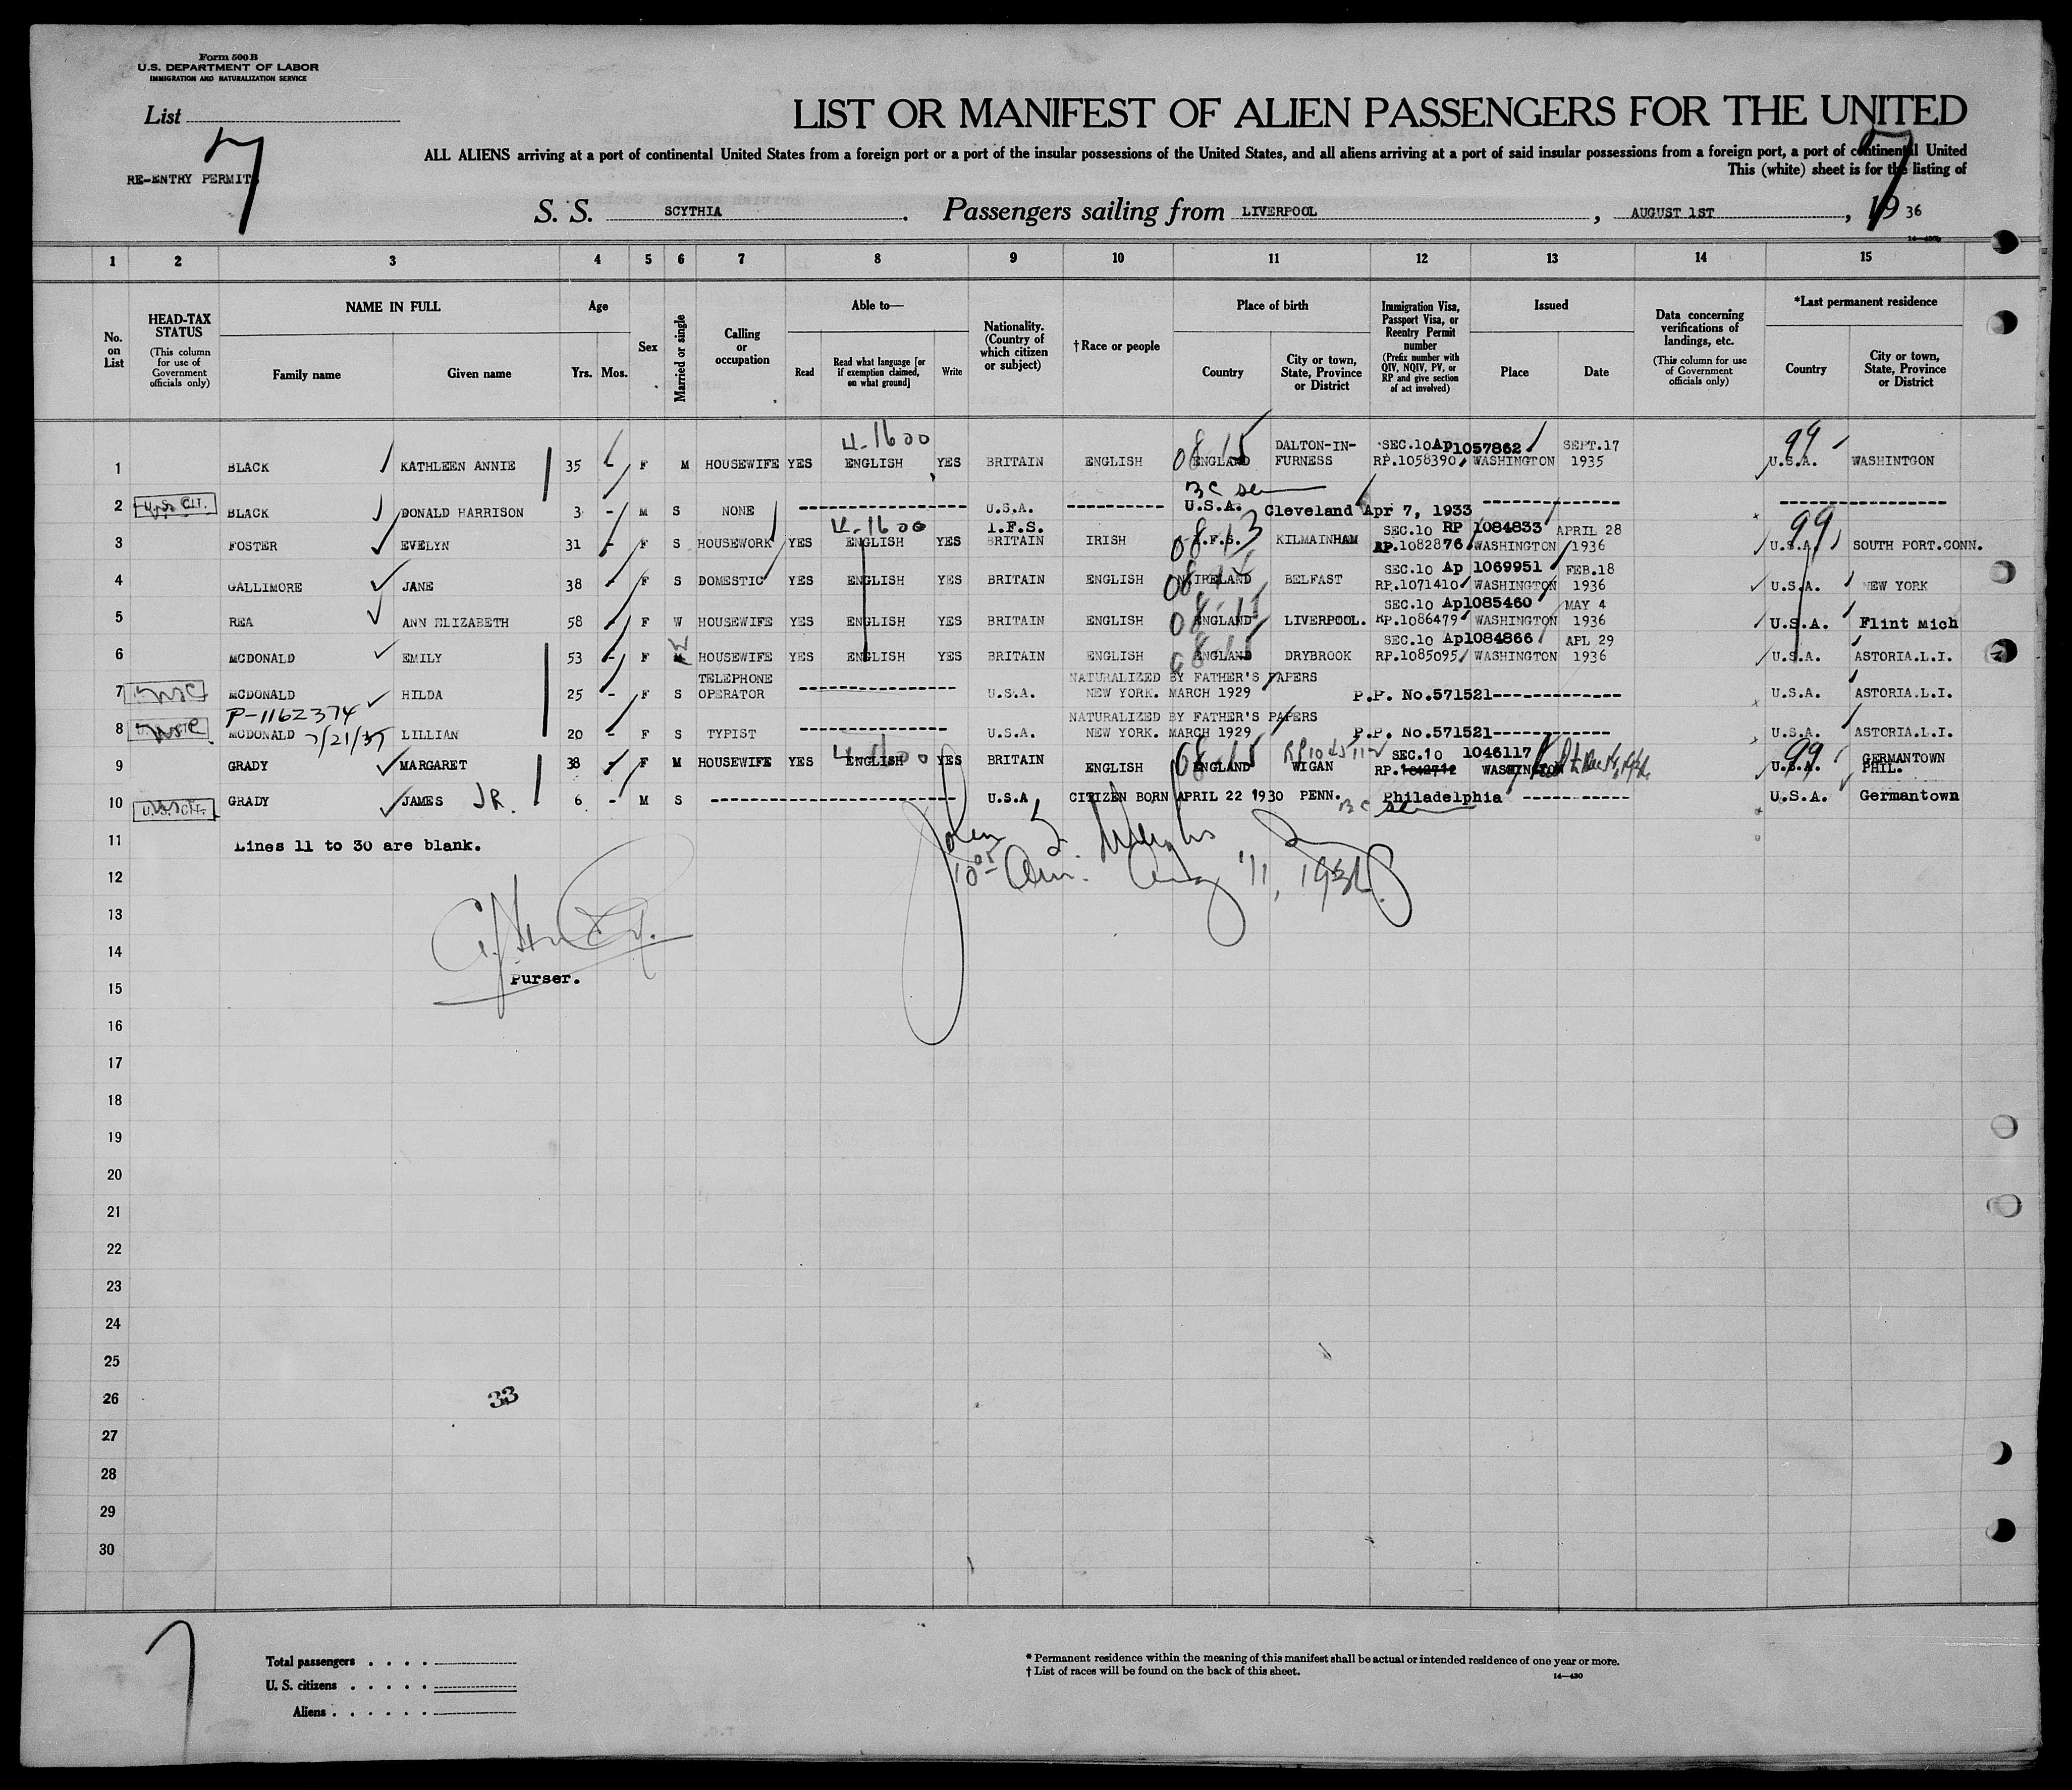 Form 500 B
U.S. DEPARTMENT OF LABOR
IMMIGRATION AND NATURALIZATION SERVICE
List
7
RE-ENTRY PERMITS
LIST OR MANIFEST OF ALIEN PASSENGERS FOR THE UNITED
7
ALL ALIENS arriving at a port of continental United States from a foreign port or a port of the insular possessions of the United States, and all aliens arriving at a port of said insular possessions from a foreign port, a port of continental United
This (white) sheet is for the listing of
S. S. SCYTHIA. Passengers sailing from LIVERPOOL, AUGUST 1ST, 1936
1 2 3 4 5 6 7 8 9 10 11 12 13 14 15
No. on List
HEAD-TAX STATUS (This column for use of Government officials only)
NAME IN FULL
Family name
Given name
Age
Yrs. Mos.
Sex
Married or single
Calling or occupation
Able to—
Read
Read what language [or if exemption claimed, on what ground]
Write
Nationality. (Country of which citizen or subject)
†Race or people
Place of birth
Country
City or town, State, Province or District
Immigration Visa, Passport Visa, or Reentry Permit number (Prefix number with QIV, NQIV, PV, or RP and give section of act involved)
Issued
Place
Date
Data concerning verifications of landings, etc. (This column for use of Government officials only)
*Last permanent residence
Country
City or town, State, Province or District
4-1600 08-15 DALTON-IN- SEC.10 Ap1057862 SEPT.17 99
1 BLACK KATHLEEN ANNIE 35 - F M HOUSEWIFE YES ENGLISH YES BRITAIN ENGLISH ENGLAND FURNESS RP.1058390 WASHINGTON 1935 U.S.A. WASHINTGON
2 U.S. CIT. BLACK DONALD HARRISON 3 - M S NONE U.S.A. U.S.A. Cleveland Apr 7, 1933
4-1600 I.F.S. 08-13 SEC.10 RP 1084833 APRIL 28 99
3 FOSTER EVELYN 31 - F S HOUSEWORK YES ENGLISH YES BRITAIN IRISH I.F.S. KILMAINHAM RP.1082876 WASHINGTON 1936 U.S.A. SOUTH PORT.CONN.
SEC.10 Ap 1069951 FEB.18
4 GALLIMORE JANE 38 - F S DOMESTIC YES ENGLISH YES BRITAIN ENGLISH IRELAND BELFAST RP.1071410 WASHINGTON 1936 U.S.A. NEW YORK
SEC.10 Ap1085460 MAY 4
5 REA ANN ELIZABETH 58 - F W HOUSEWIFE YES ENGLISH YES BRITAIN ENGLISH ENGLAND LIVERPOOL. RP.1086479 WASHINGTON 1936 U.S.A. Flint Mich
SEC.10 Ap1084866 APL 29
6 MCDONALD EMILY 53 - F HOUSEWIFE YES ENGLISH YES BRITAIN ENGLISH ENGLAND DRYBROOK RP.1085095 WASHINGTON 1936 U.S.A. ASTORIA.L.I.
TELEPHONE NATURALIZED BY FATHER'S PAPERS
7 MCDONALD HILDA 25 - F S OPERATOR U.S.A. NEW YORK. MARCH 1929 P.P. No.571521 U.S.A. ASTORIA.L.I.
P-1162374 NATURALIZED BY FATHER'S PAPERS
8 MCDONALD 7/21/35 LILLIAN 20 - F S TYPIST U.S.A. NEW YORK. MARCH 1929 P.P. No.571521 U.S.A. ASTORIA.L.I.
4-1600 08-15 SEC.10 1046117 99 GERMANTOWN
9 GRADY MARGARET 38 - F M HOUSEWIFE YES ENGLISH YES BRITAIN ENGLISH ENGLAND WIGAN RP. WASHINGTON U.S.A. PHIL.
10 U.S. CIT. GRADY JAMES JR. 6 - M S U.S.A CITIZEN BORN APRIL 22 1930 PENN. Philadelphia U.S.A. Germantown
11 Lines 11 to 30 are blank.
12
Aug 11, 1936
13
14
Purser.
15
16
17
18
19
20
21
22
23
24
25
26
33
27
28
29
30
Total passengers
U. S. citizens
Aliens
* Permanent residence within the meaning of this manifest shall be actual or intended residence of one year or more.
† List of races will be found on the back of this sheet.
14—430